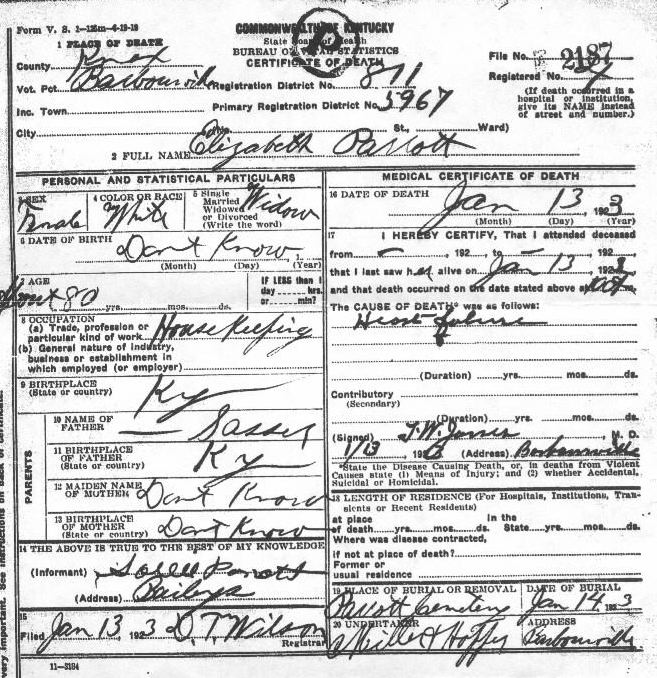 Form V. S. 1-125m-4-19-18
COMMONWEALTH OF KENTUCKY
State Board of Health
BUREAU OF VITAL STATISTICS
CERTIFICATE OF DEATH
1 PLACE OF DEATH
County Knox
Vot. Pct Barbourville
Inc. Town
City
Registration District No. 871
Primary Registration District No. 5967
St., Ward)
File No. 2187
Registered No.
(If death occurred in a hospital or institution, give its NAME instead of street and number.)
2 FULL NAME Elizabeth Parrott
PERSONAL AND STATISTICAL PARTICULARS
3 SEX Female
4 COLOR OR RACE White
5 Single Married Widowed or Divorced (Write the word) Widow
6 DATE OF BIRTH Dont Know 1
(Month) (Day) (Year)
7 AGE
80 yrs. mos. ds.
IF LESS than 1 day hrs. or min?
8 OCCUPATION
(a) Trade, profession or particular kind of work House Keeping
(b) General nature of industry, business or establishment in which employed (or employer)
9 BIRTHPLACE
(State or country) Ky
PARENTS
10 NAME OF FATHER Sasser
11 BIRTHPLACE OF FATHER
(State or country) Ky
12 MAIDEN NAME OF MOTHER Dont Know
13 BIRTHPLACE OF MOTHER
(State or country) Dont Know
14 THE ABOVE IS TRUE TO THE BEST OF MY KNOWLEDGE
(Informant) Parrott
(Address)
15
Filed Jan 13, 1923 D. T. Wilson
Registrar
11-3184
MEDICAL CERTIFICATE OF DEATH
16 DATE OF DEATH Jan 13 1923
(Month) (Day) (Year)
17 I HEREBY CERTIFY, That I attended deceased
from - , 192 , to - , 192
that I last saw her alive on Jan 13, 192
and that death occurred on the date stated above at
The CAUSE OF DEATH* was as follows:
Heart failure
(Duration) yrs. mos. ds.
Contributory
(Secondary)
(Duration) yrs. mos. ds.
(Signed) T. W. Jones, M. D.
1/13, 192 (Address) Barbourville
*State the Disease Causing Death, or, in deaths from Violent
Causes state (1) Means of Injury; and (2) whether Accidental,
Suicidal or Homicidal.
18 LENGTH OF RESIDENCE (For Hospitals, Institutions, Transients or Recent Residents)
at place of death yrs. mos. ds. In the State yrs. mos. ds.
Where was disease contracted,
if not at place of death?
Former or
usual residence
19 PLACE OF BURIAL OR REMOVAL Parrott Cemetery
DATE OF BURIAL Jan 14, 1923
20 UNDERTAKER
ADDRESS Barbourville